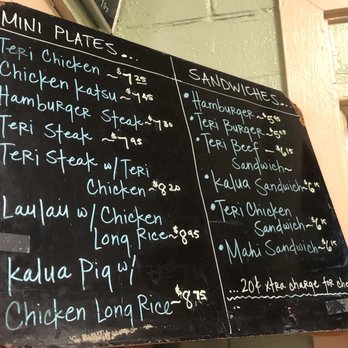 MINI PLATES...
Teri Chicken ~$7.25
Chicken Katsu ~$7.45
Hamburger Steak ~$7.30
Teri Steak ~$7.95
Teri Steak w/ Teri
Chicken ~$8.20
Laulau w/ Chicken
Long Rice ~$8.95
Kalua Pig w/
Chicken Long Rice ~$8.75
SANDWICHES...
• Hamburger ~
• Teri Burger ~
• Teri Beef ~
Sandwich ~
• Kalua Sandwich ~
• Teri Chicken
Sandwich ~
• Mahi Sandwich ~
...20¢ xtra charge for